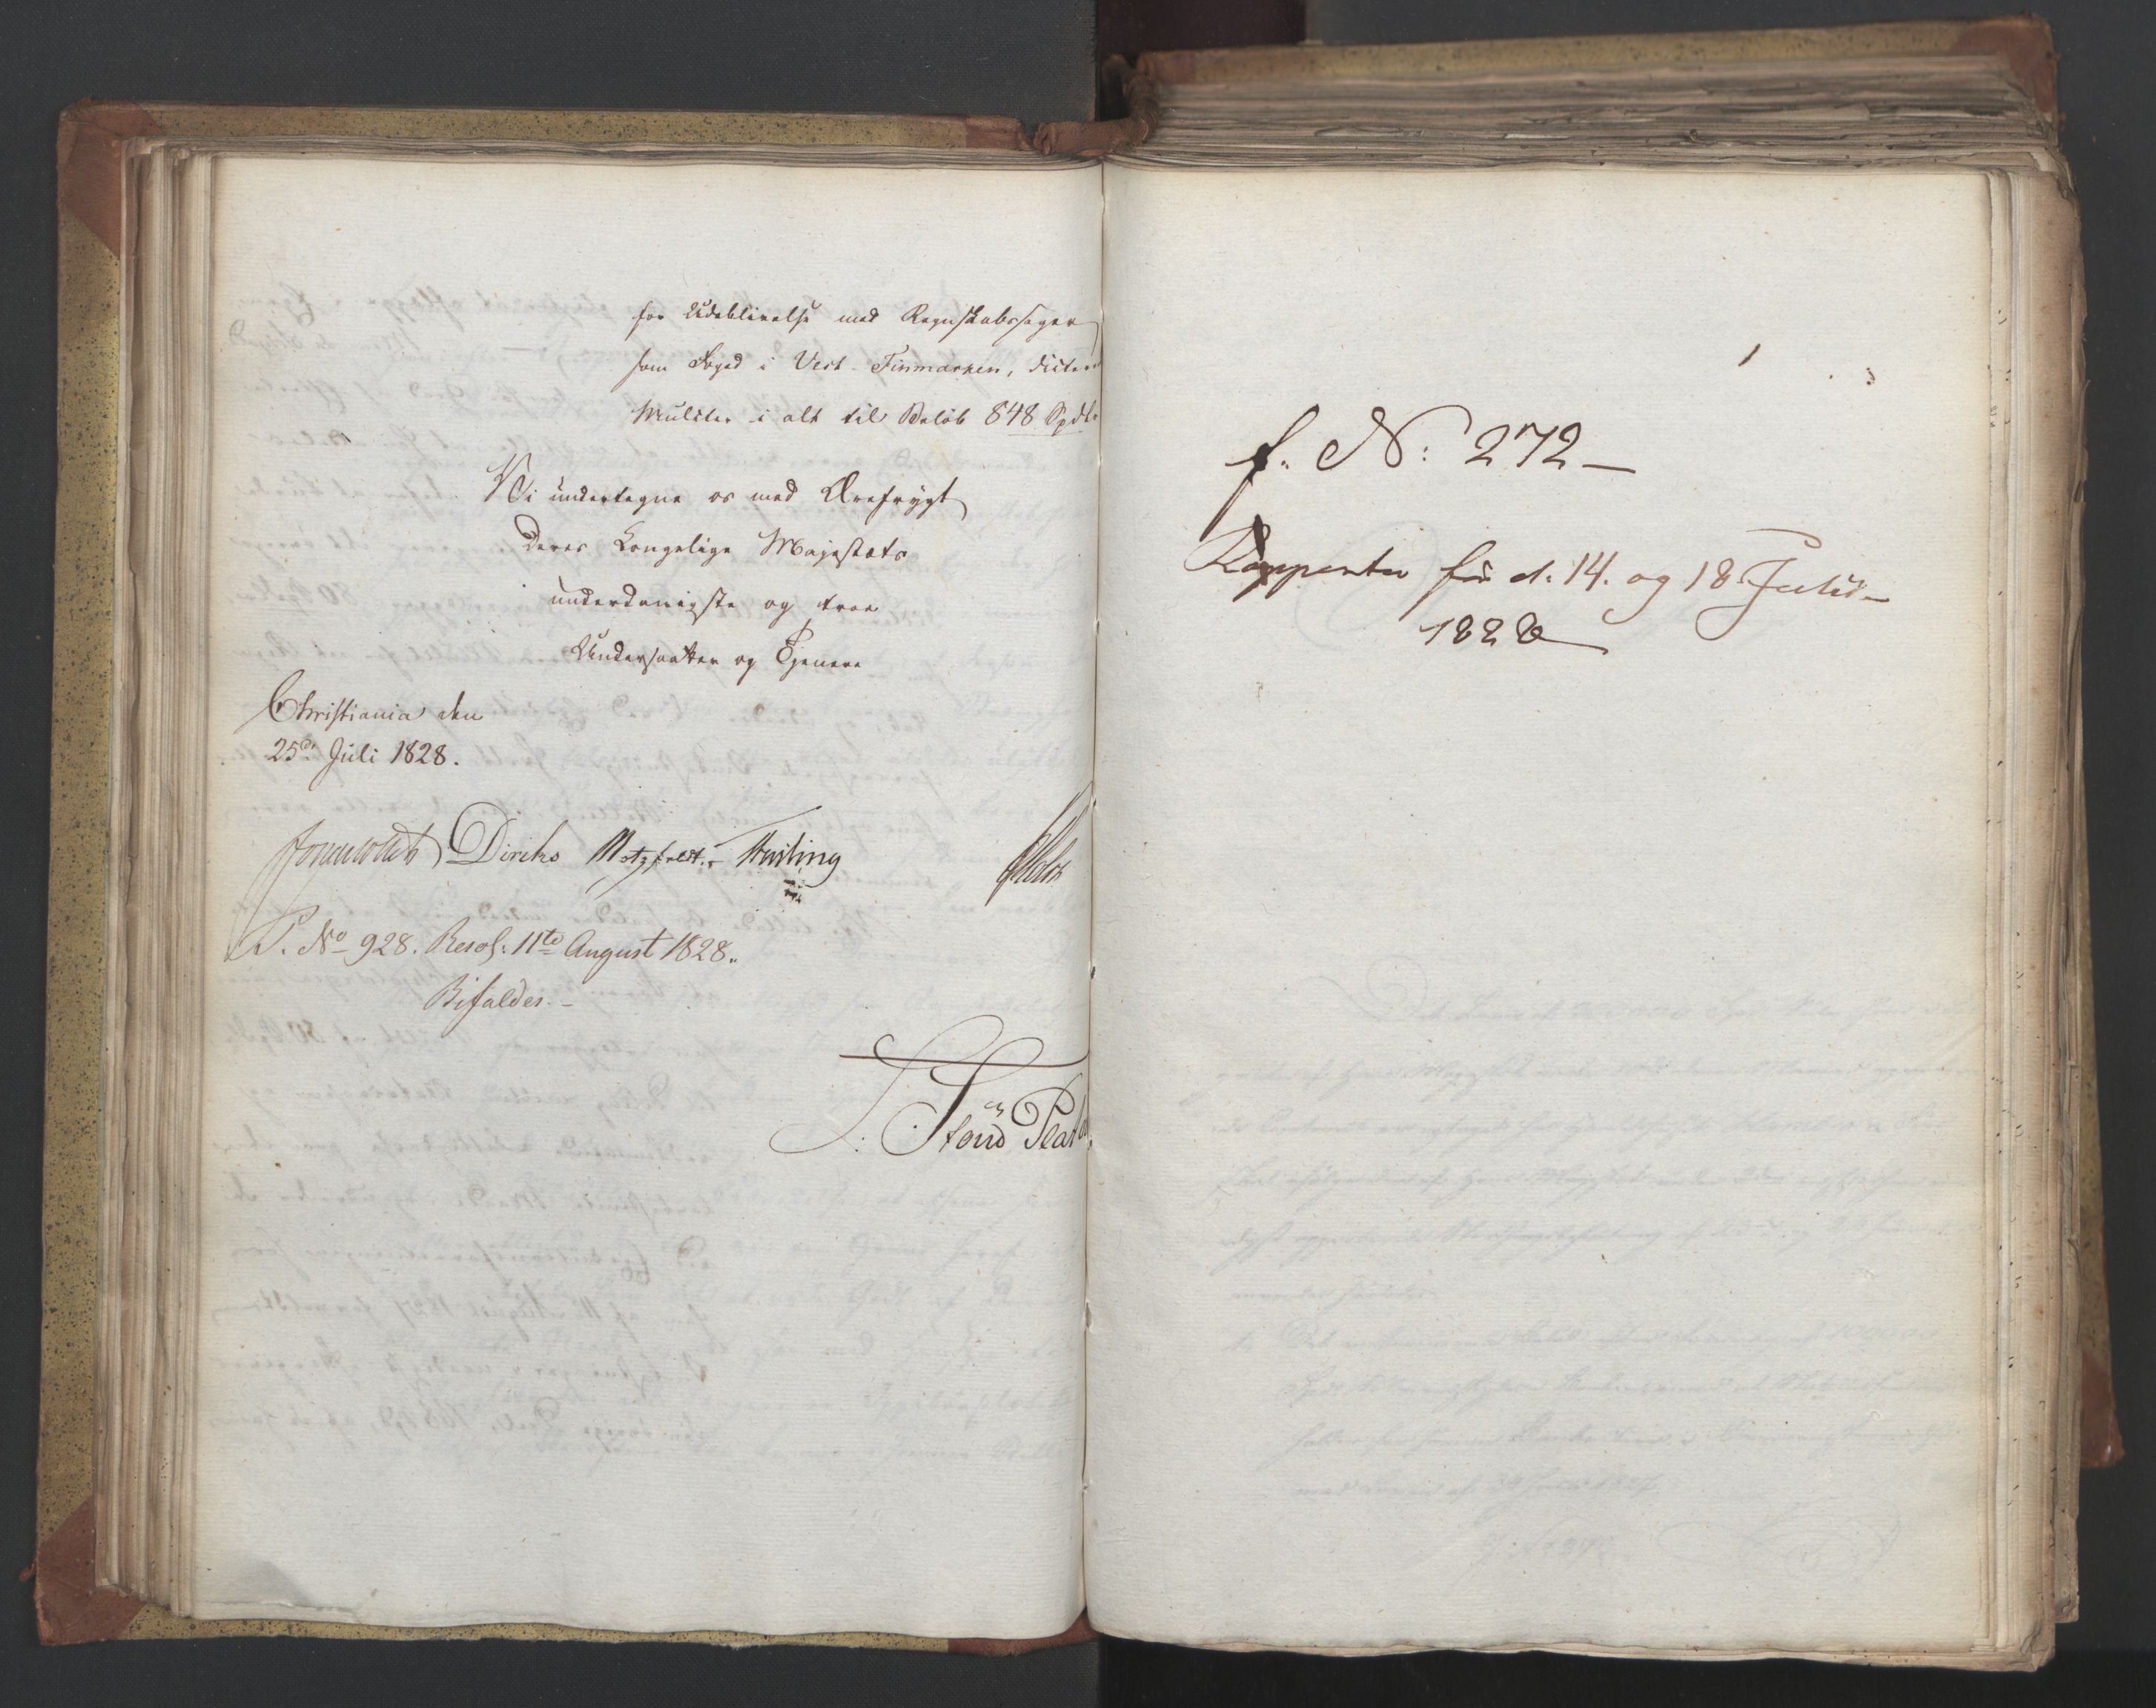 for Udeblivelse med Regnskabssager
som Foged i Vest-Finmarken, dicterede
Mulcter i alt til Beløb 848 Spdlr
Vi undertegne os med Ærefrygt
Deres Kongelige Majestæts
underdanigste og troe
Undersaatter og Tjenere
Christiania den
25de Juli 1828.
Diriks Motzfeldt. Holst
P. No 928. Resol: 11te August 1828.
Bifaldes.-
f. N: 272-
for d. 14. og 18 Juli
1828